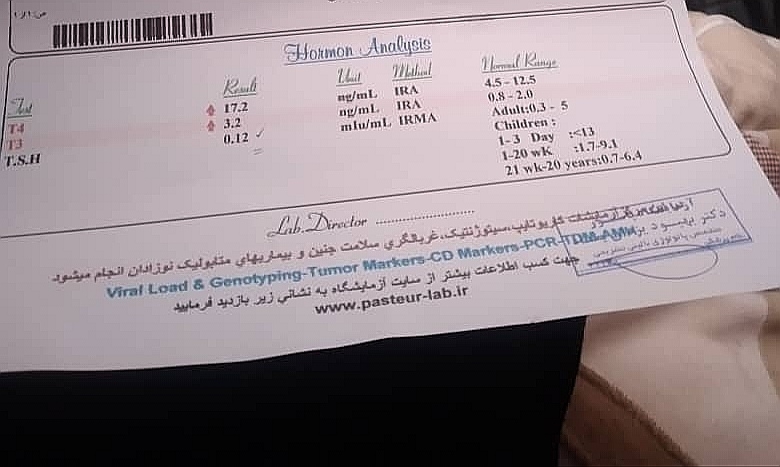 ص: ۱/۱
Hormon Analysis
Test Result Unit Method Normal Range
T4 17.2 ng/mL IRA 4.5 - 12.5
T3 3.2 ng/mL IRA 0.8 - 2.0
T.S.H 0.12 mIu/mL IRMA Adult:0.3 - 5
Children :
1- 3 Day :<13
1-20 wK :1.7-9.1
21 wk-20 years:0.7-6.4
Lab.Director ..........................
آزمايشات كاريوتايپ،سيتوژنتيک،غربالگري سلامت جنين و بيماريهاي متابوليک نوزادان انجام ميشود
Viral Load & Genotyping-Tumor Markers-CD Markers-PCR-TDM-AMH
جهت كسب اطلاعات بيشتر از سايت آزمايشگاه به نشاني زير بازديد فرماييد
www.pasteur-lab.ir
دكتر